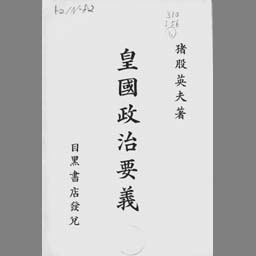 猪股英夫著
皇國政治要義
目黒書店發兌